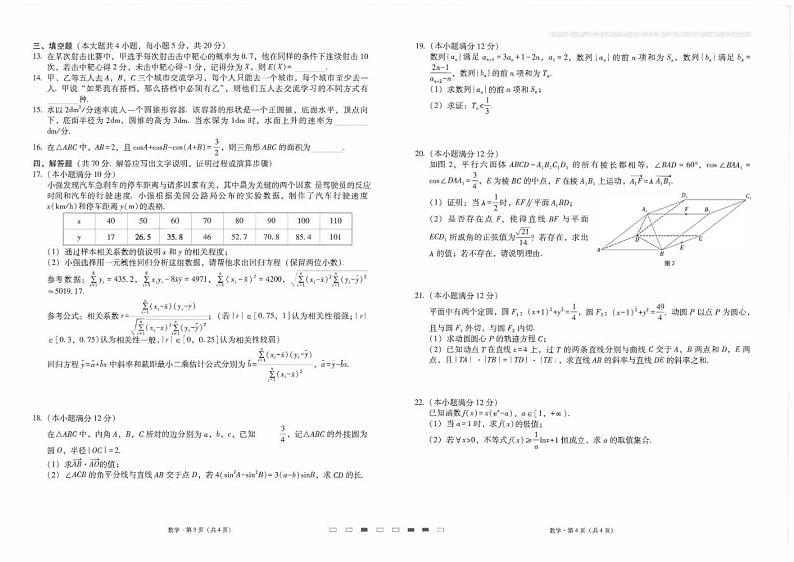 三、填空题（本大题共4小题，每小题5分，共20分）
13. 在某次射击比赛中，甲选手每次射击击中靶心的概率为0.7，他在同样的条件下连续射击10
次，若击中靶心得2分，未击中靶心得-1分，记得分为X，则E(X)=______.
14. 甲、乙等五人去A，B，C三个城市交流学习，每个人只能去一个城市，每个城市至少去一
人. 甲说“如果我有搭档，那么搭档中必须有乙”，则他们五人去交流学习的不同方式有
______种.
15. 水以2dm³/分速率流人一个圆锥形容器. 该容器的形状是一个正圆锥，底面水平，顶点向
下，底面半径为2dm，圆锥的高为3dm. 当水深为1dm时，水面上升的速率为______
dm/分.
16. 在△ABC中，AB=2，且cosA+cosB-cos(A+B)=3/2，则三角形ABC的面积为______.
四、解答题（共70分. 解答应写出文字说明，证明过程或演算步骤）
17.（本小题满分10分）
小强发现汽车急刹车的停车距离与诸多因素有关，其中最为关键的两个因素 是驾驶员的反应
时间和汽车的行驶速度. 小强根据美国公路局公布的实验数据，制作了汽车行驶速度
x(km/h)和停车距离y(m)的表格.
x 40 50 60 70 80 90 100 110
y 17 26.5 35.8 46 52.7 70.8 85.4 101
（1）通过样本相关系数的值说明x和y的相关程度；
（2）小强选择用一元线性回归分析这组数据，请帮他求出回归方程（保留两位小数）.
参考数据：∑y_i=435.2，∑x_iy_i-8x̄ȳ=4971，∑(x_i-x̄)²=4200，√(∑(x_i-x̄)²∑(y_i-ȳ)²)
≈5019.17.
参考公式：相关系数r=∑(x_i-x̄)(y_i-ȳ)/√(∑(x_i-x̄)²∑(y_i-ȳ)²)；（若|r|∈[0.75，1]认为相关性很强；|r|
∈[0.3，0.75)认为相关性一般，|r|∈[0，0.25]认为相关性较弱）
回归方程ŷ=â+b̂x中斜率和截距最小二乘估计公式分别为b̂=∑(x_i-x̄)(y_i-ȳ)/∑(x_i-x̄)²，â=ȳ-b̂x̄.
18.（本小题满分12分）
在△ABC中，内角A，B，C所对的边分别为a，b，c，已知 3/4，记△ABC的外接圆为
圆O，半径|OC|=2.
（1）求AB·AO的值；
（2）∠ACB的角平分线与直线AB交于点D，若4(sin²A-sin²B)=3(a-b)sinB，求CD的长.
数学·第3页（共4页）
19.（本小题满分12分）
数列{a_n}满足a_{n+1}=3a_n+1-2n，a_1=2，数列{a_n}的前n项和为S_n，数列{b_n}满足b_n=
2n-1/a_{n-2}-n，数列{b_n}的前n项和为T_n.
（1）求数列{a_n}的前n项和S_n；
（2）求证：T_n<1/3.
20.（本小题满分12分）
如图2，平行六面体ABCD-A₁B₁C₁D₁的所有棱长都相等，∠BAD=60°，cos∠BAA₁=
cos∠DAA₁=3/4，E为棱BC的中点，F在棱A₁B₁上运动，A₁F=λA₁B₁.
（1）证明：当λ=1/2时，EF∥平面A₁BD；
（2）是否存在点F，使得直线BF与平面
ECD₁所成角的正弦值为√21/14？若存在，求出
λ的值；若不存在，请说明理由.
图2
21.（本小题满分12分）
平面中有两个定圆，圆F₁：(x+1)²+y²=1/4，圆F₂：(x-1)²+y²=49/4. 动圆P以点P为圆心，
且与圆F₁外切，与圆F₂内切.
（1）求动圆圆心P的轨迹方程C；
（2）已知动点T在直线x=4上，过T的两条直线分别与曲线C交于A，B两点和D，E两
点，且|TA|·|TB|=|TD|·|TE|，求直线AB的斜率与直线DE的斜率之和.
22.（本小题满分12分）
已知函数f(x)=x(eˣ-a)，a∈[1，+∞).
（1）当a=1时，求f(x)的极值；
（2）若∀x>0，不等式f(x)≥1/a lnx+1恒成立，求a的取值集合.
数学·第4页（共4页）